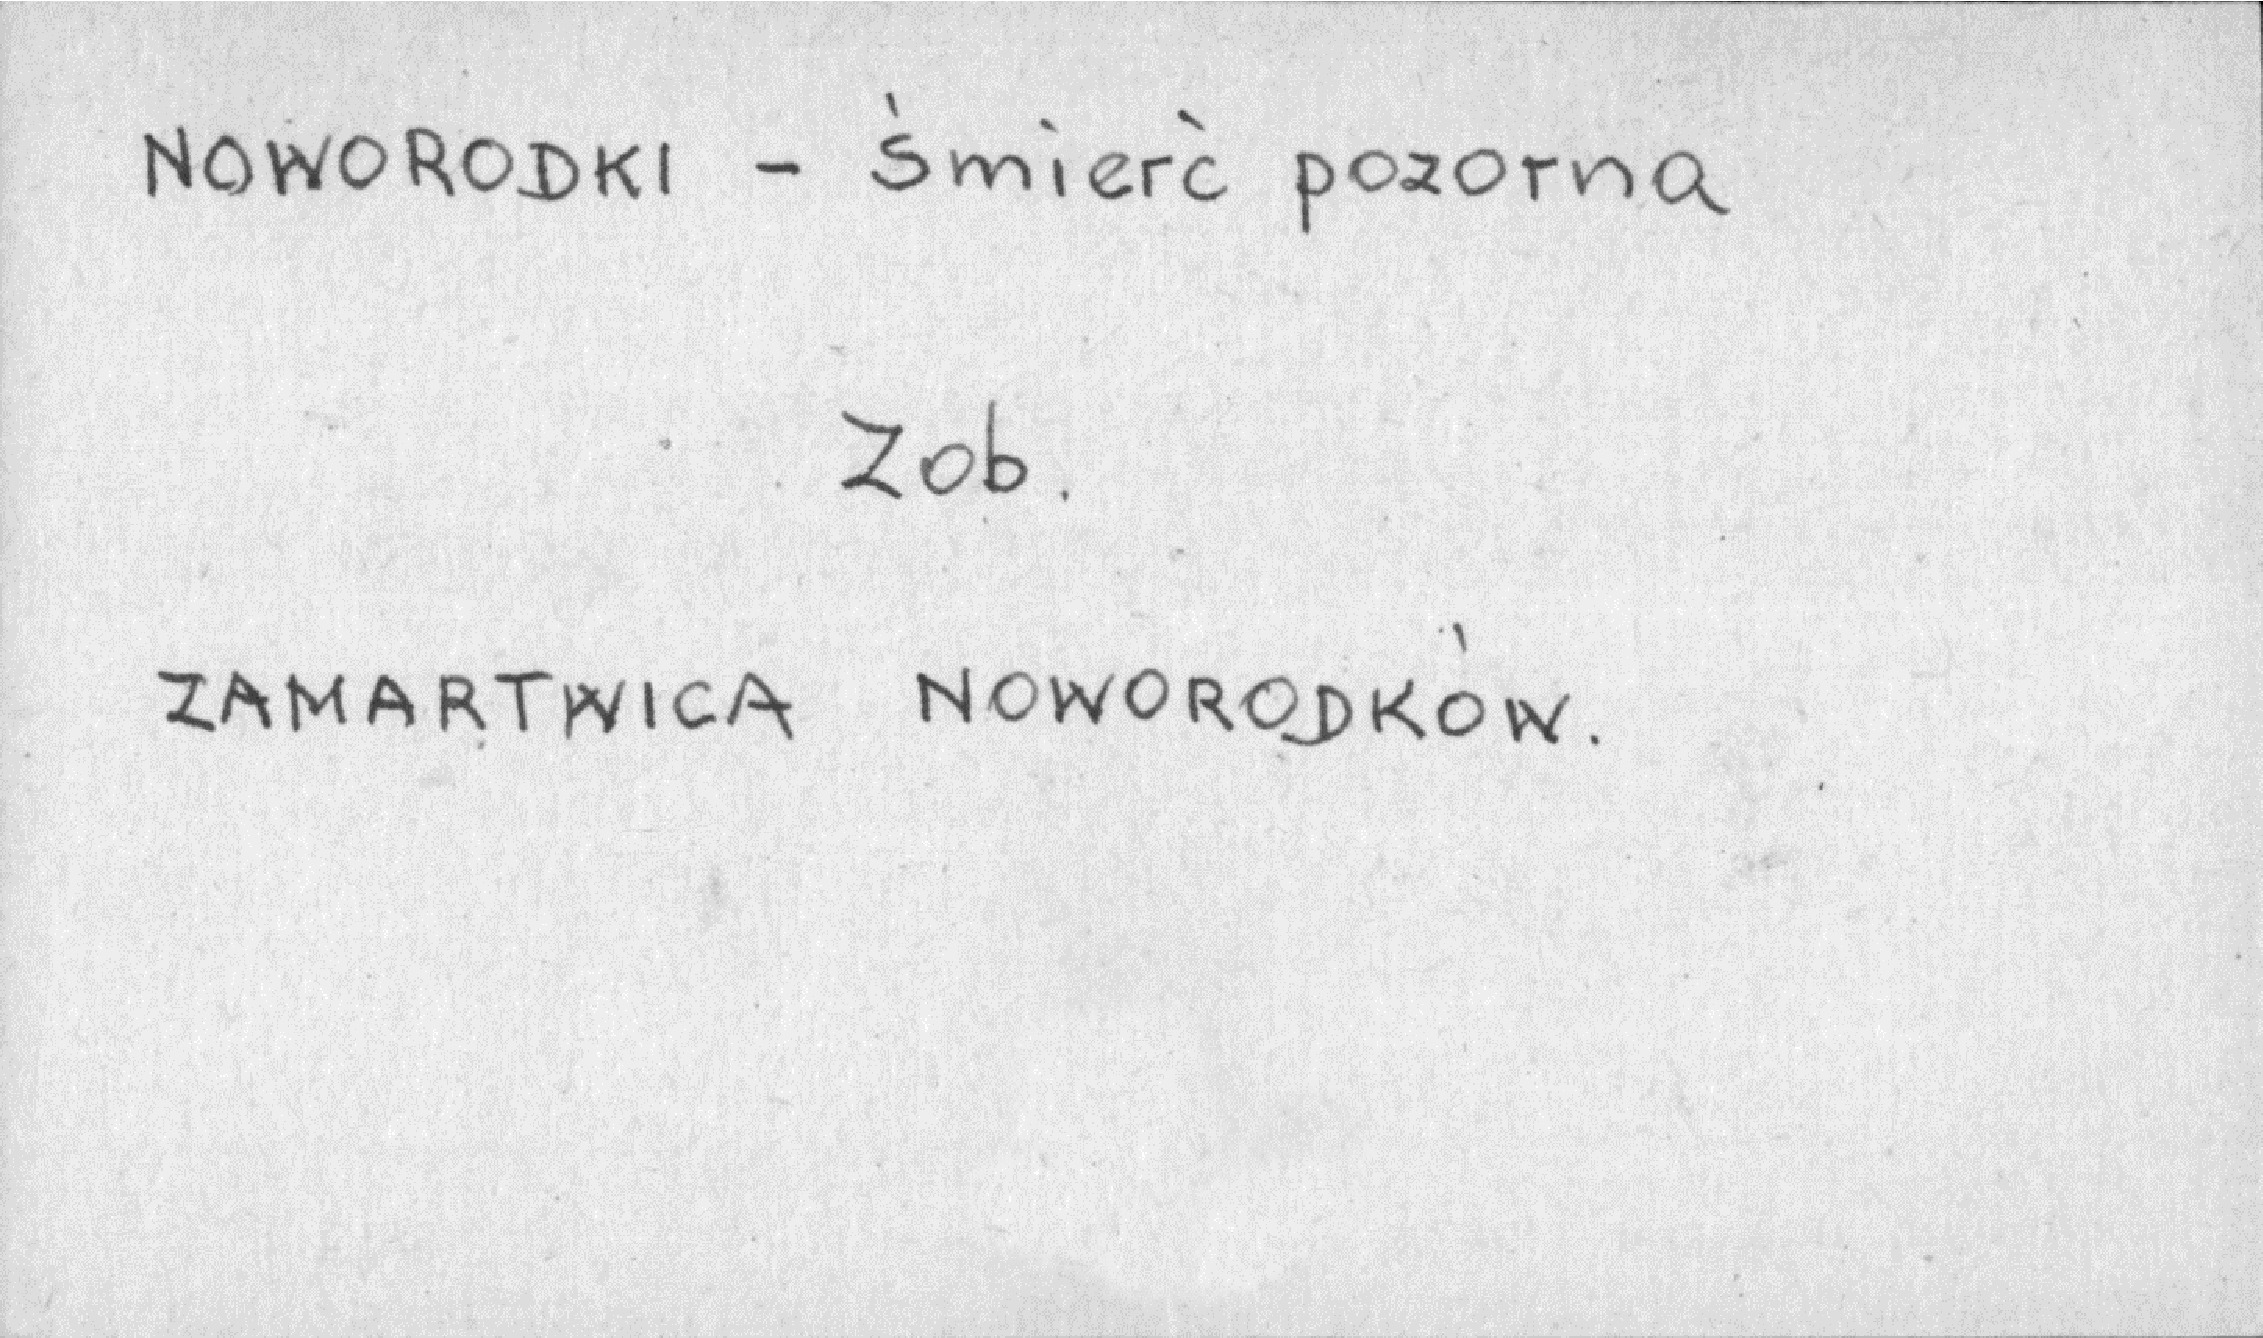 NOWORODKI - śmierć pozorna
Zob.
ZAMARTWICA NOWORODKÓW.